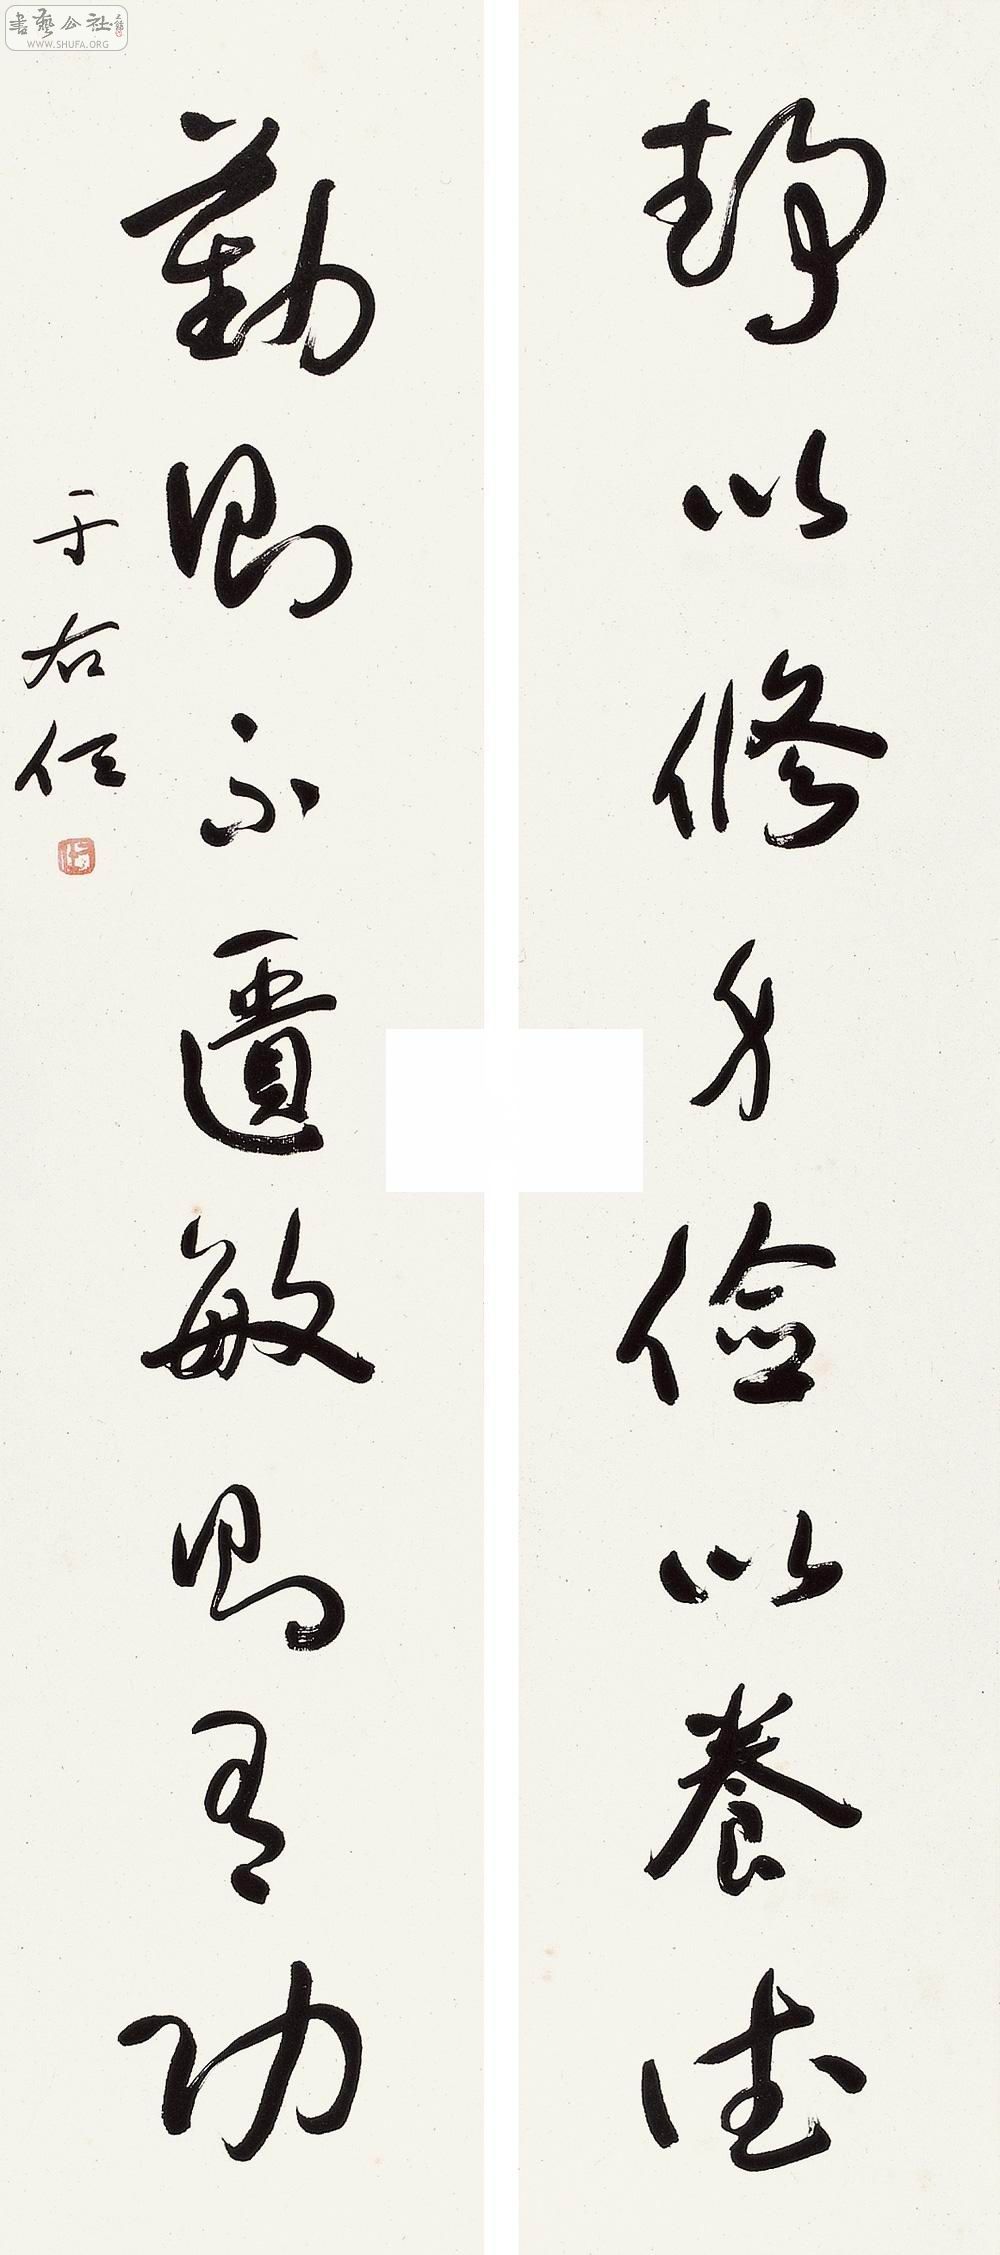 静以修身儉以養德
勤則不匱敏則有功
于右任
書藝公社
WWW.SHUFA.ORG